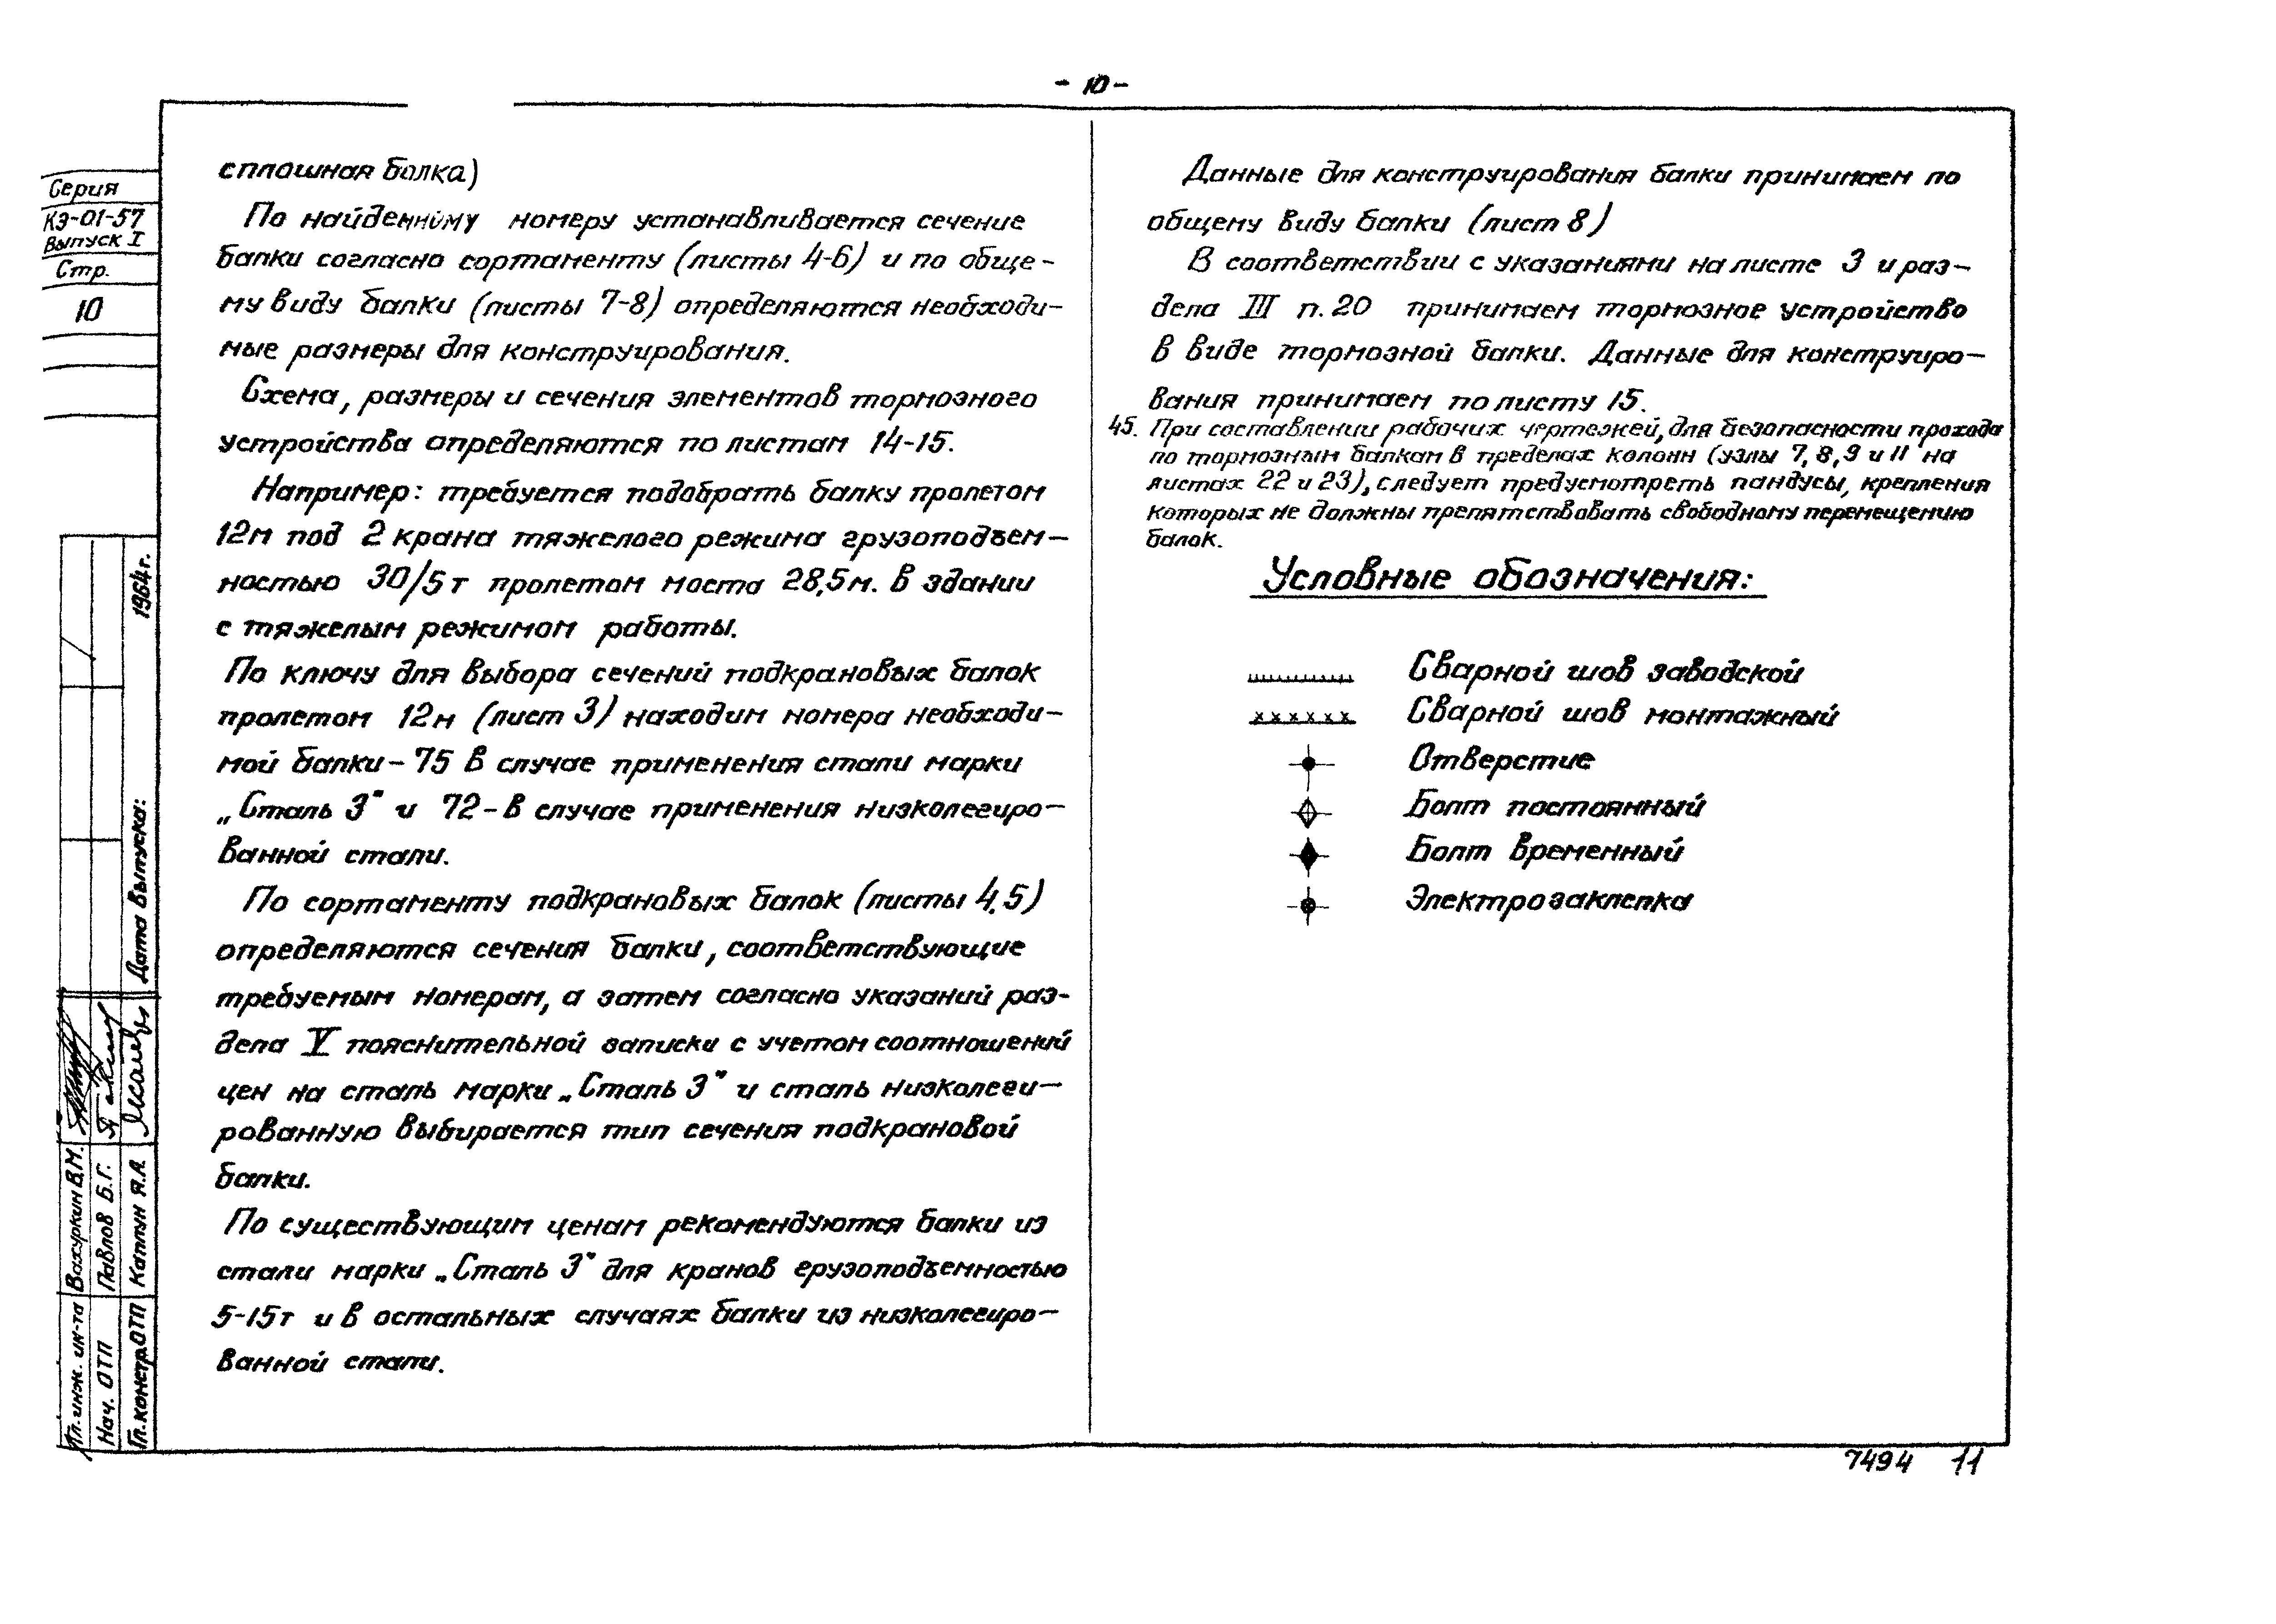 - 10 -
Серия
КЭ-01-57
Выпуск I
Стр.
10
1964 г.
Дата выпуска:
Гл. инж. ин-та Вахуркин В.М.
Нач. ОТП Павлов Б.Г.
Гл. констр. ОТП Каплун Я.А.
сплошная балка)
По найденному номеру устанавливается сечение
балки согласно сортаменту (листы 4-6) и по обще-
му виду балки (листы 7-8) определяются необходи-
мые размеры для конструирования.
Схема, размеры и сечения элементов тормозного
устройства определяются по листам 14-15.
Например: требуется подобрать балку пролетом
12м под 2 крана тяжелого режима грузоподъем-
ностью 30/5т пролетом моста 28,5м. В здании
с тяжелым режимом работы.
По ключу для выбора сечений подкрановых балок
пролетом 12м (лист 3) находим номера необходи-
мой балки - 75 в случае применения стали марки
„Сталь 3" и 72 - в случае применения низколегиро-
ванной стали.
По сортаменту подкрановых балок (листы 4,5)
определяются сечения балки, соответствующие
требуемым номерам, а затем согласно указаний раз-
дела V пояснительной записки с учетом соотношений
цен на сталь марки „Сталь 3" и сталь низколеги-
рованную выбирается тип сечения подкрановой
балки.
По существующим ценам рекомендуются балки из
стали марки „Сталь 3" для кранов грузоподъемностью
5-15т и в остальных случаях балки из низколегиро-
ванной стали.
Данные для конструирования балки принимаем по
общему виду балки (лист 8)
В соответствии с указаниями на листе 3 и раз-
дела III п. 20 принимаем тормозное устройство
в виде тормозной балки. Данные для конструиро-
вания принимаем по листу 15.
45. При составлении рабочих чертежей, для безопасности прохода
по тормозным балкам в пределах колонн (узлы 7, 8, 9 и 11 на
листах 22 и 23), следует предусмотреть пандусы, крепления
которых не должны препятствовать свободному перемещению
балок.
Условные обозначения:
Сварной шов заводской
Сварной шов монтажный
Отверстие
Болт постоянный
Болт временный
Электрозаклепка
7494 11